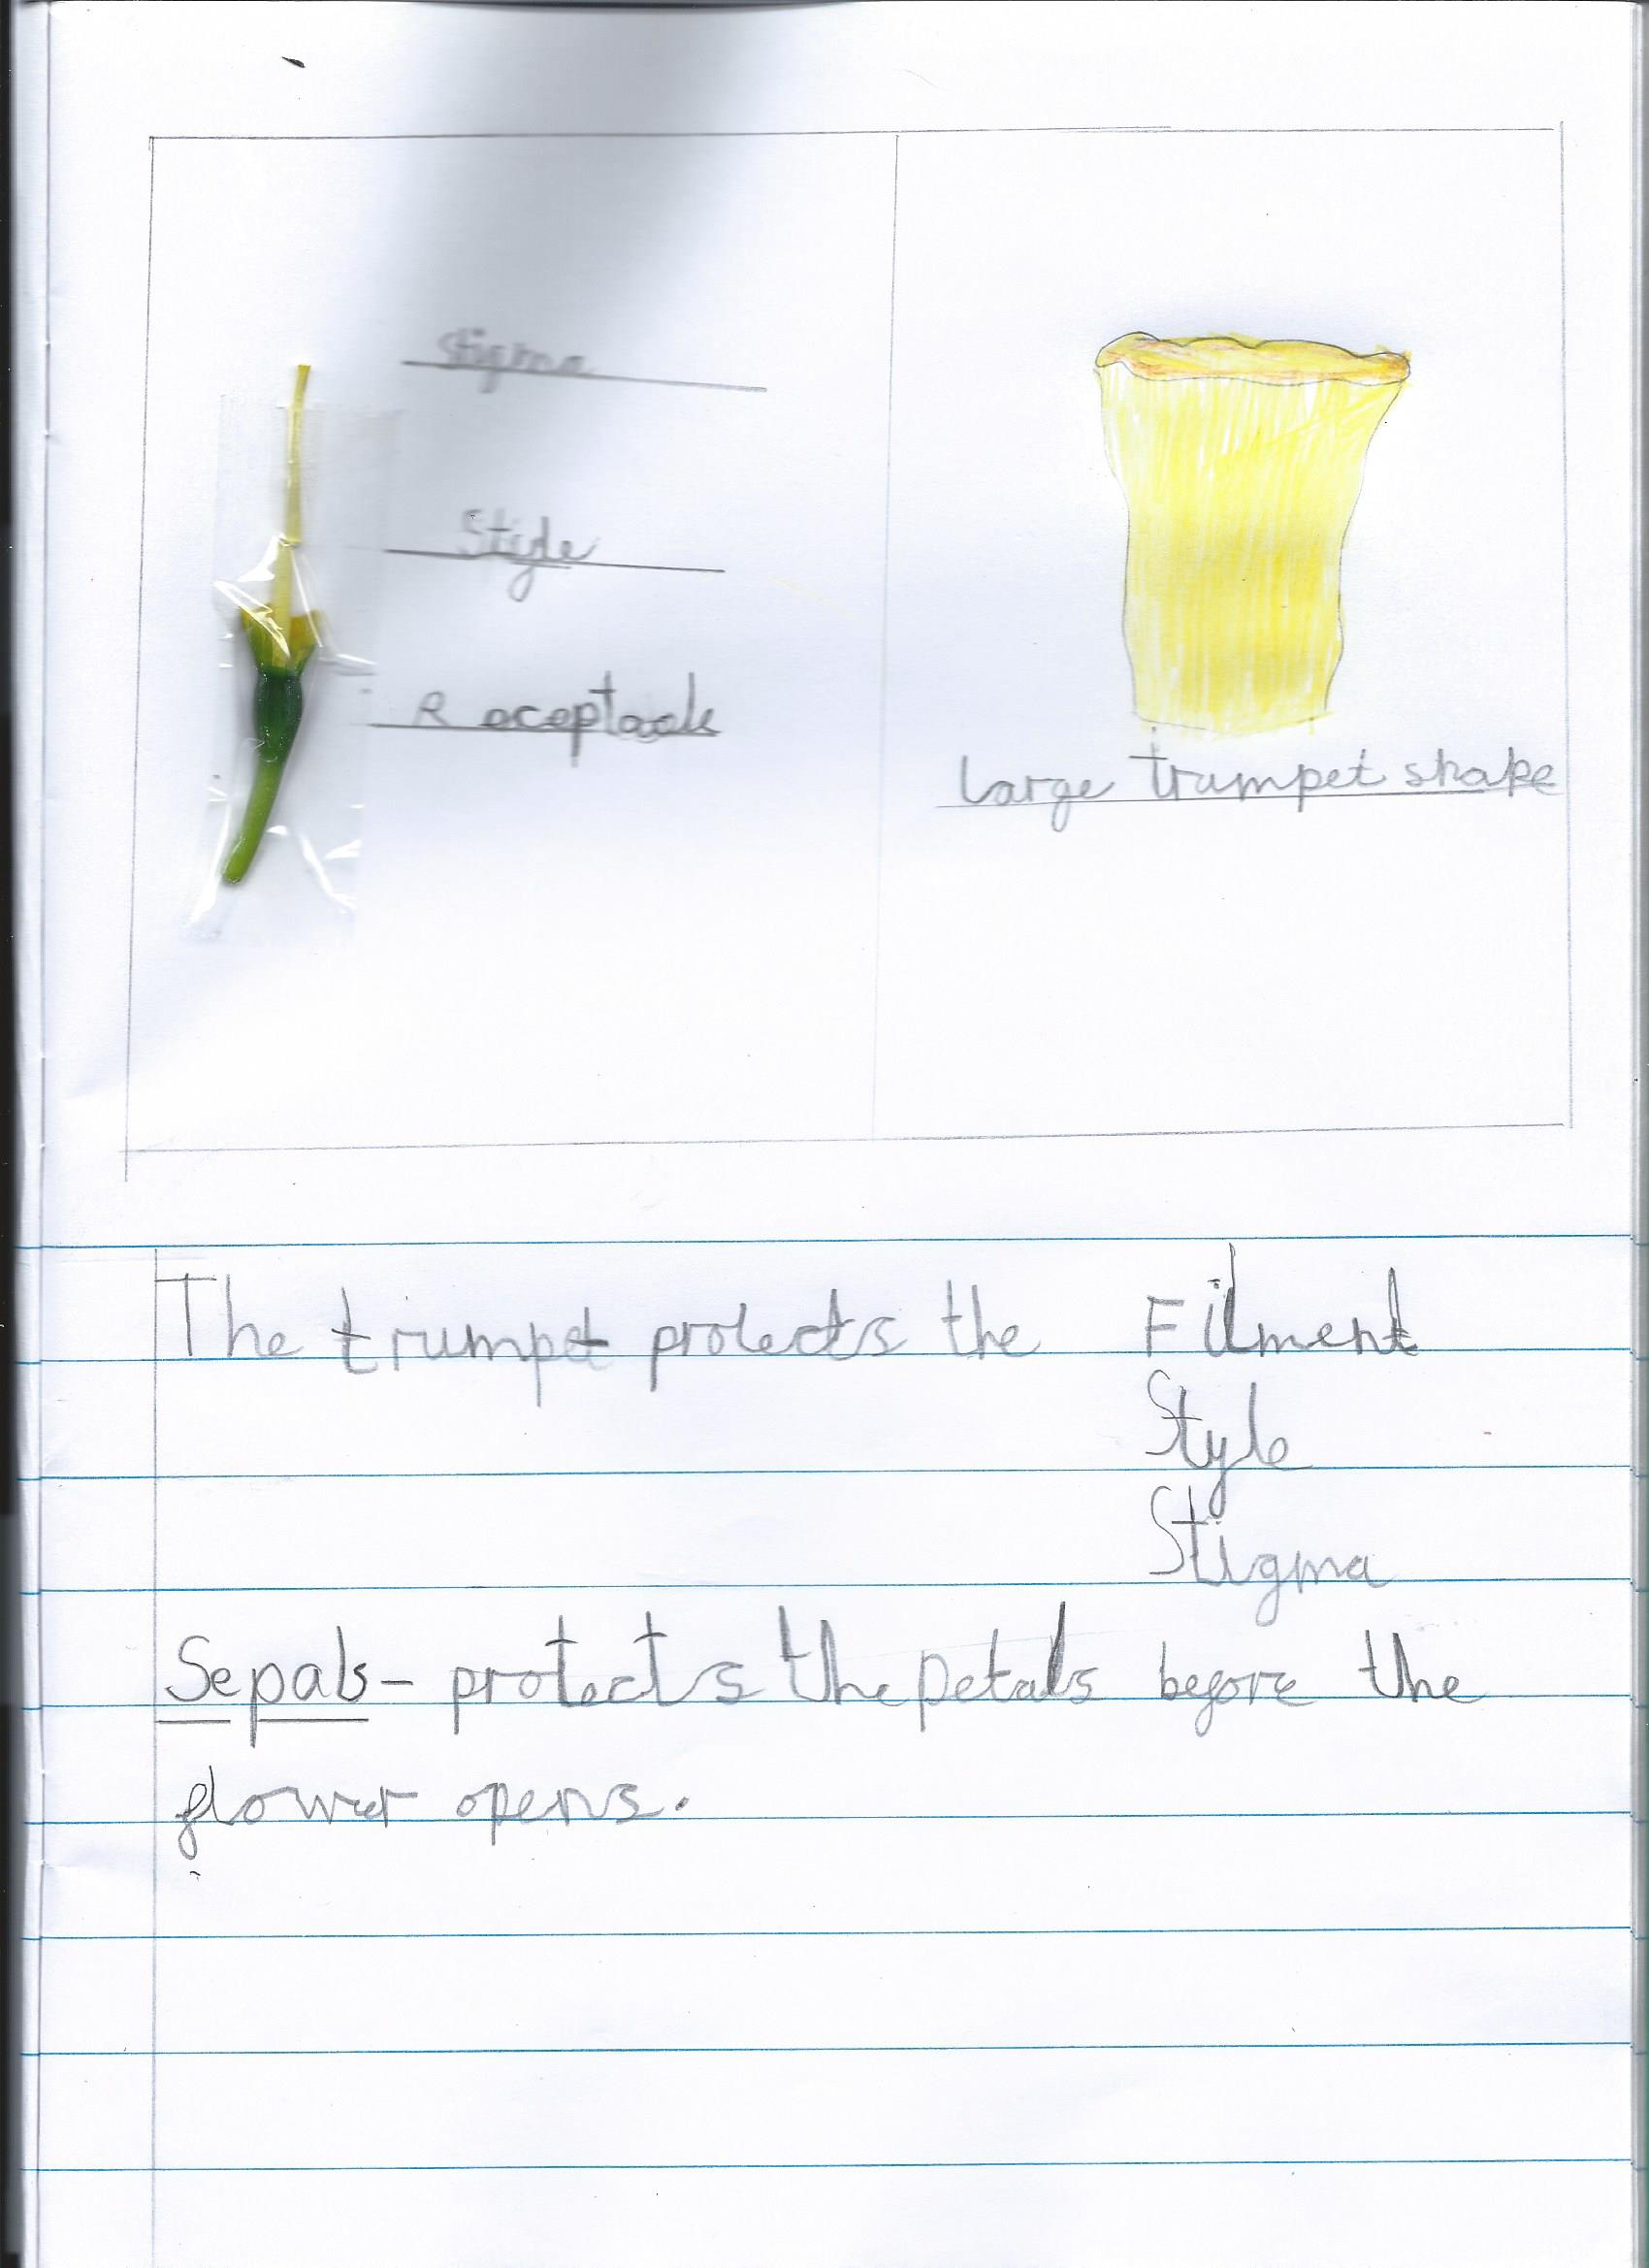 Stigma
Style
Receptacle
large trumpet shape
The trumpet protects the Filment
Style
Stigma
Sepals - protects the petals before the
flower opens.